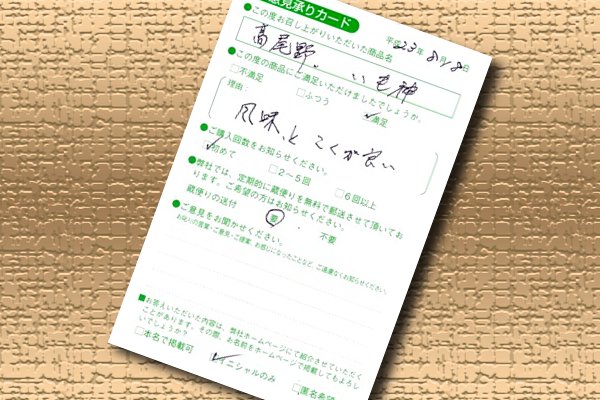 意見承りカード
平成23年8月18日
●この度お召し上がりいただいた商品名
高尾野、いも神
●この度の商品にご満足いただけましたでしょうか。
□不満足 □ふつう ☑満足
理由：
風味、とこくが良い
●ご購入回数をお知らせください。
☑初めて □2～5回 □6回以上
●弊社では、定期的に蔵便りを無料で郵送させて頂いてお
ります。ご希望の方はお知らせください。
蔵便りの送付 要 ・ 不要
●ご意見をお聞かせください。
お叱りの言葉・ご意見・ご提案、お感じになったことなど、ご遠慮なくお知らせください。
■お答えいただいた内容は、弊社ホームページにて紹介させていただく
ことがあります。その際、お名前をホームページで掲載してもよろし
いでしょうか？
□本名で掲載可 ☑イニシャルのみ □匿名希望